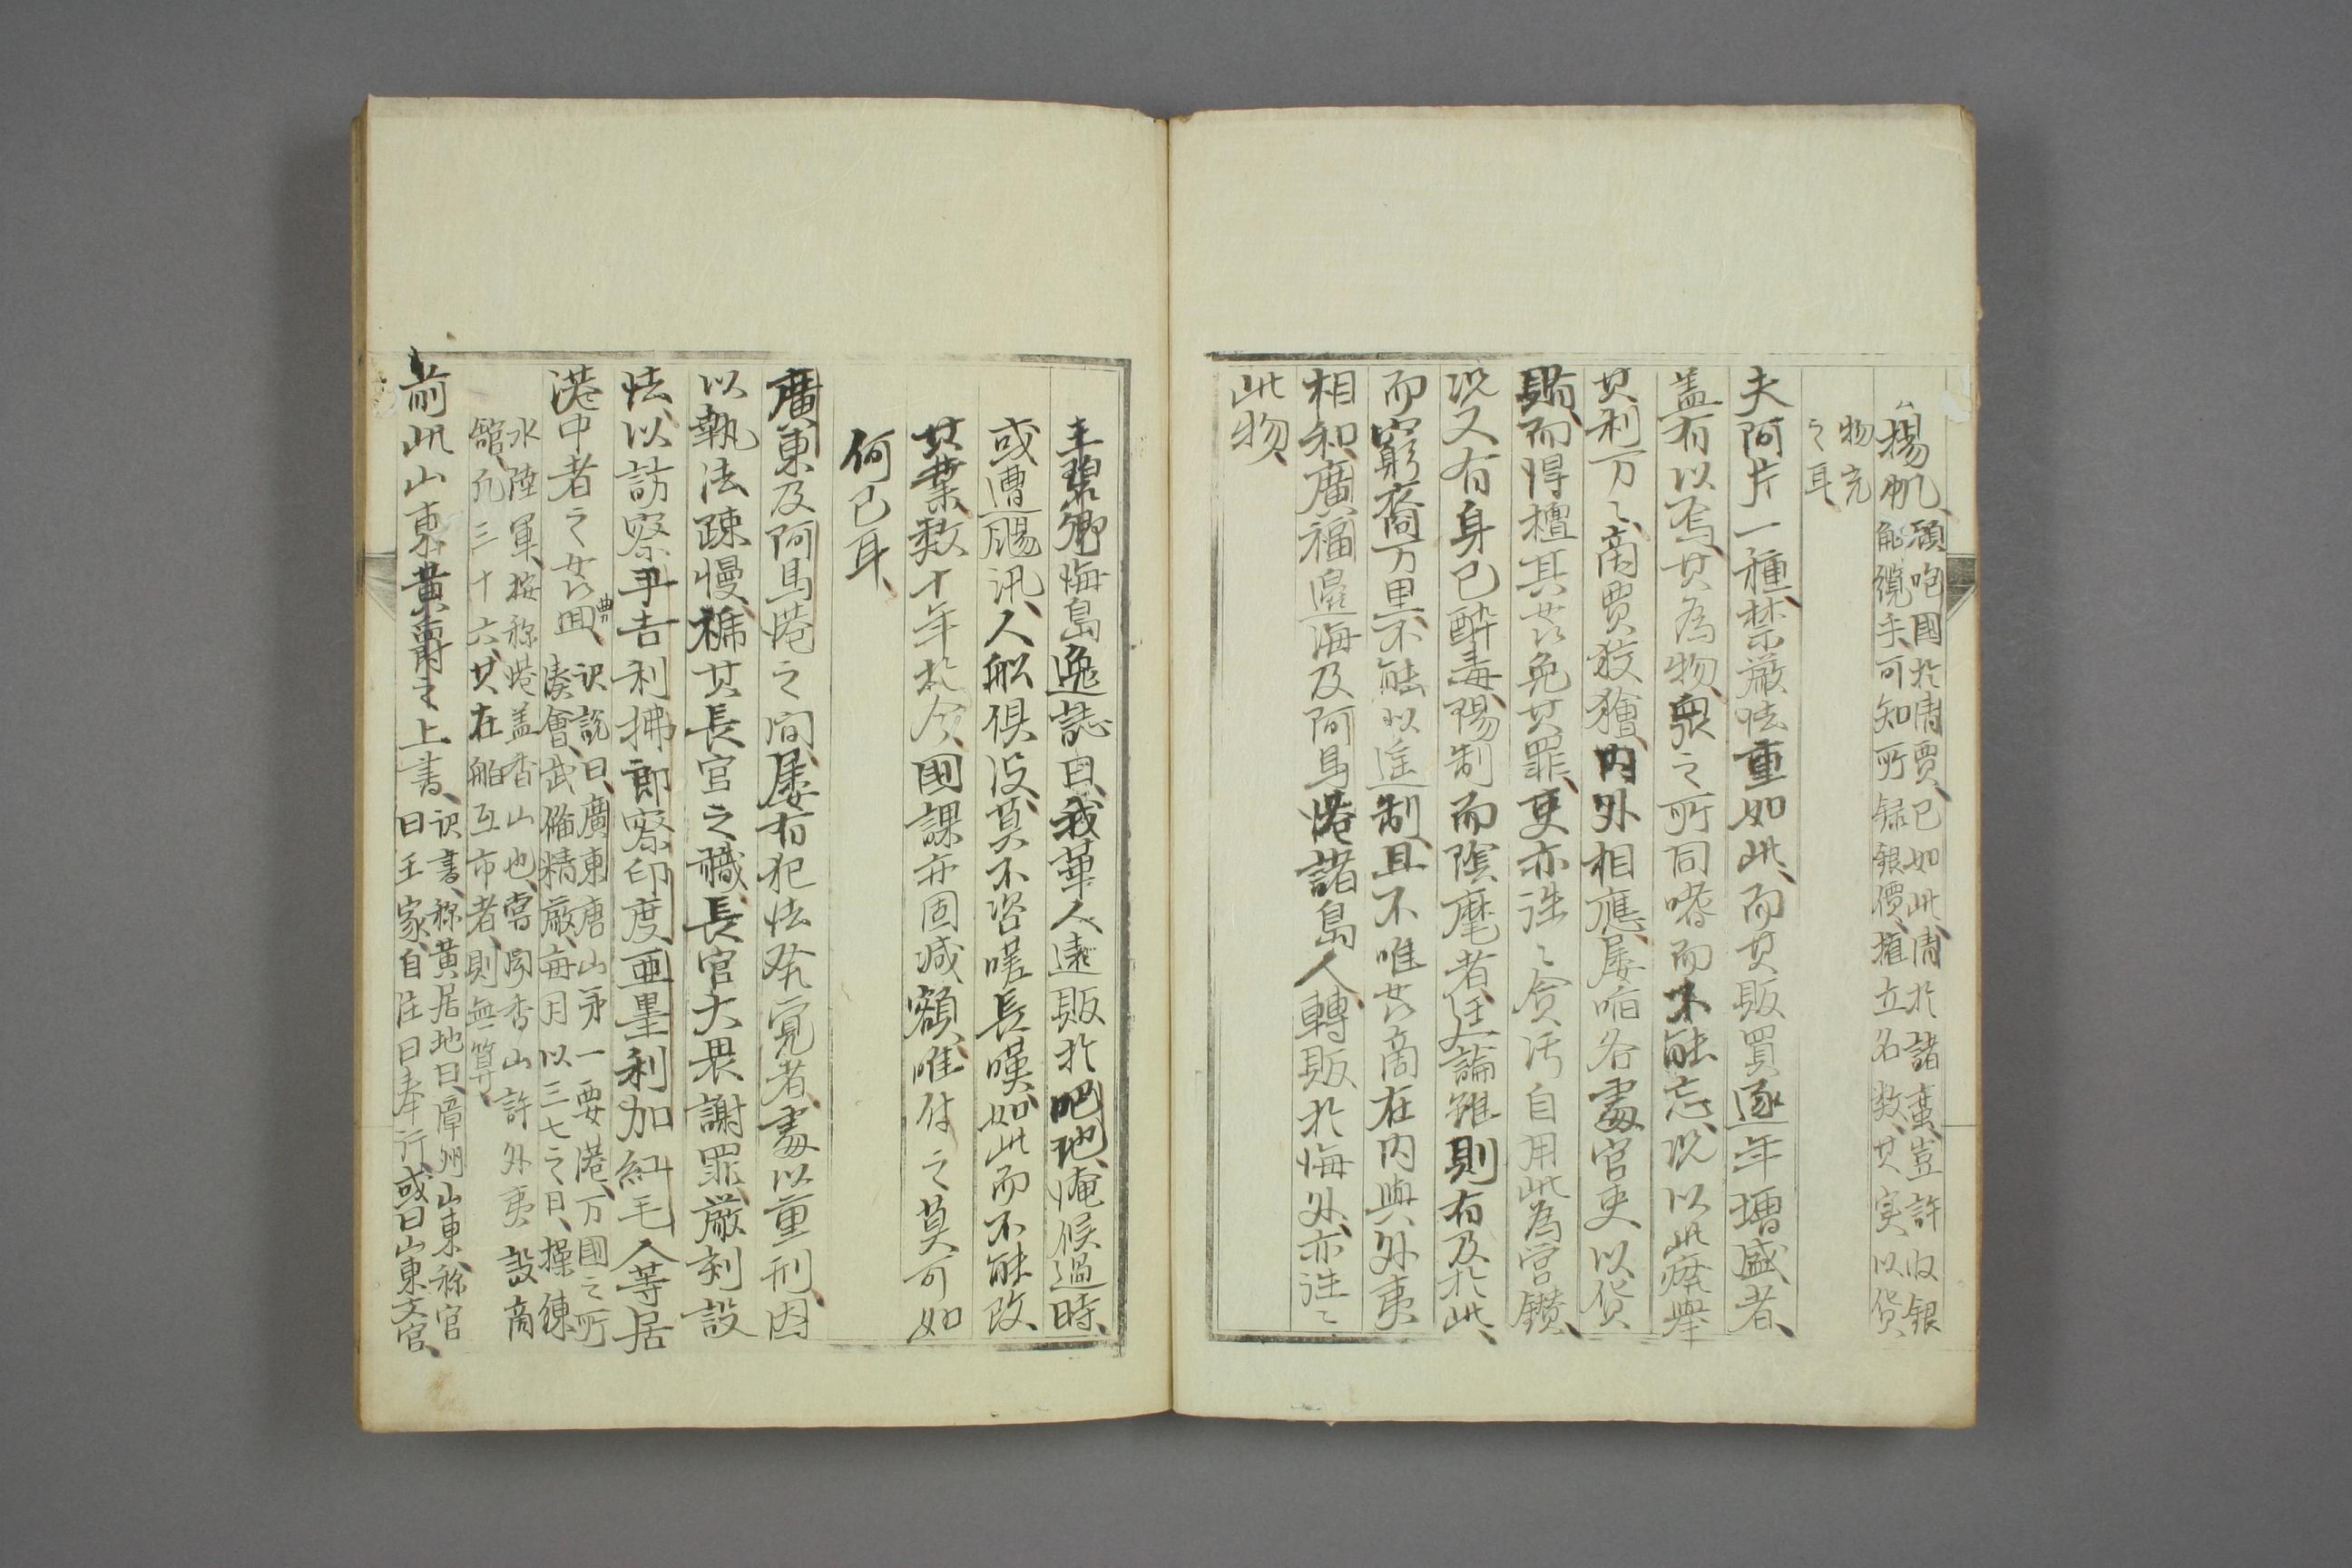 揚帆
頒咆國於清賈已如此清於諸蛮豈許收銀
觧纜手可知所録銀價擅立名数其実以貨
物充
之耳
夫阿片一種禁厳法重如此而其販買逐年増盛者
盖有以焉其為物衆之所同嗜而不能忘況以此癈挙
其利万々商賈狡獪内外相應屡啗各處官吏以貨
賂而得檀其芸免其罪吏亦往々貪汚自用此為宮鑚
況又有身已酔毒陽制而陰麾者廷論雖則有及於此
而窮裔万里不能以遥制且不唯其商在内與外夷
相和廣福邊海及阿馬港諸島人轉販於海外亦往々
此物
王碧卿海島逸誌曰我華人遠販於吧地俺候過時
或遭颶汛人舩倶没莫不咨嗟長嘆如此而不能改
其業数十年於今國課亦固减額唯付之莫可如
何已耳
廣東及阿馬港之間屡有犯法発覚者處以重刑因
以執法疎慢褫其長官之職長官大畏謝罪厳刻設
法以訪察乎吉利拂郎察印度亜墨利加紅毛人等居
港中者之芸囬
訳説曰廣東唐山第一要港万國之所
湊會武備精厳毎月以三七之日操練
水陸軍按称港盖香山也嘗聞香山許外夷設商
舘凡三十六其在舶互市者則無算
前此山東黄爵之上書
訳書称黄居地曰漳州山東称官
曰王家自注曰奉行或曰山東文官